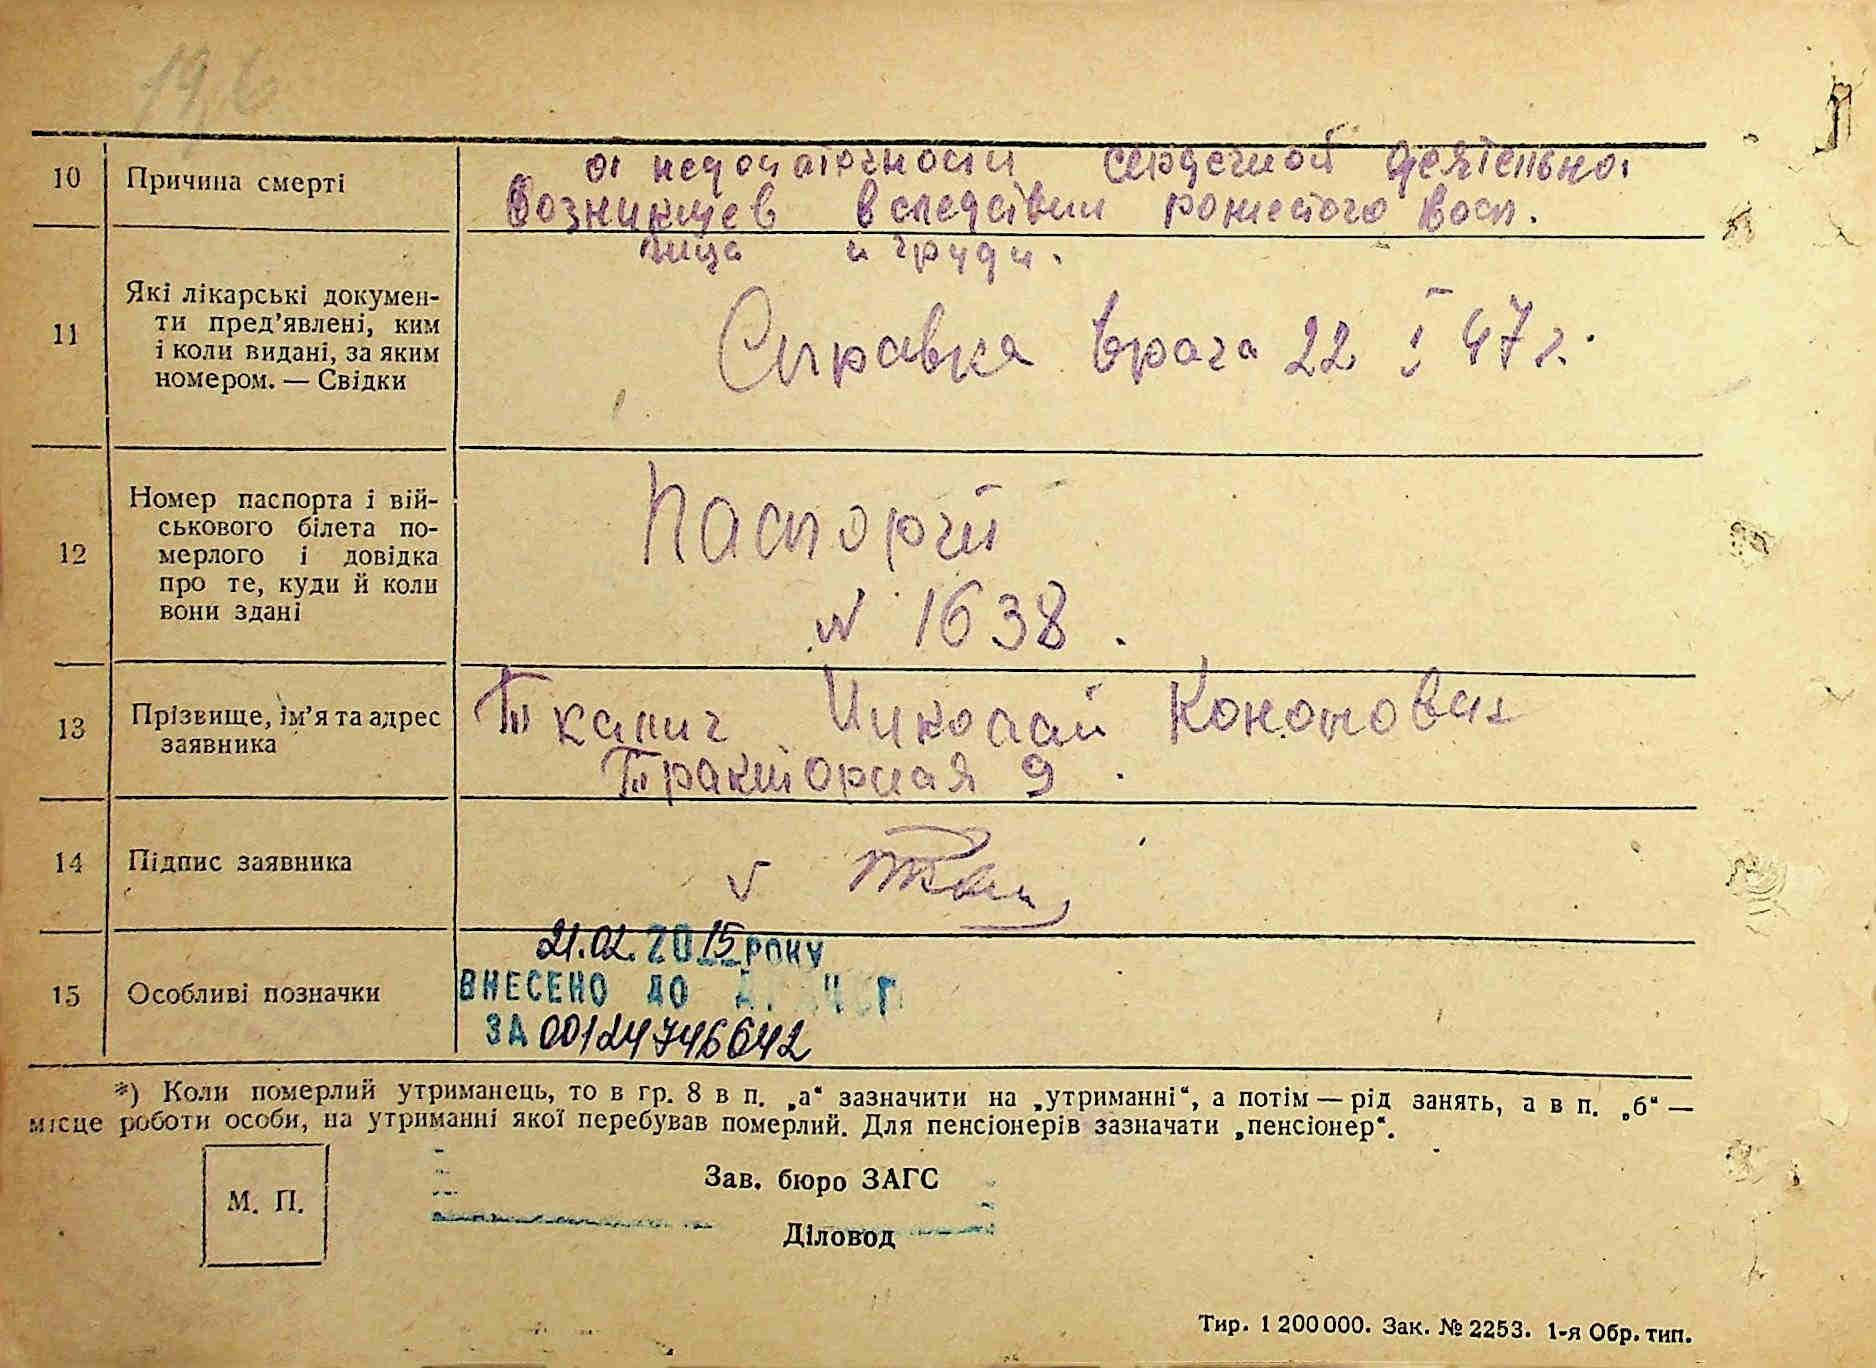 19,6
10 Причина смерті от недостаточности сердечной деятельно.
Возникшев вследствии рожистого восп.
лица и груди.
11 Які лікарські докумен-
ти пред’явлені, ким
і коли видані, за яким
номером. — Свідки
Справка врача 22 I 47 г.
12 Номер паспорта і вій-
ськового білета по-
мерлого і довідка
про те, куди й коли
вони здані
Паспорт
N 1638.
13 Прізвище, ім’я та адрес
заявника
Ткалич Николай Кононович
Тракторная 9.
14 Підпис заявника
15 Особливі позначки
21.02.2015 РОКУ
ВНЕСЕНО ДО
ЗА 00124746642
*) Коли померлий утриманець, то в гр. 8 в п. „а“ зазначити на „утриманні“, а потім — рід занять, а в п. „б“ —
місце роботи особи, на утриманні якої перебував померлий. Для пенсіонерів зазначати „пенсіонер“.
М. П.
Зав. бюро ЗАГС
Діловод
Тир. 1 200 000. Зак. № 2253. 1-я Обр. тип.